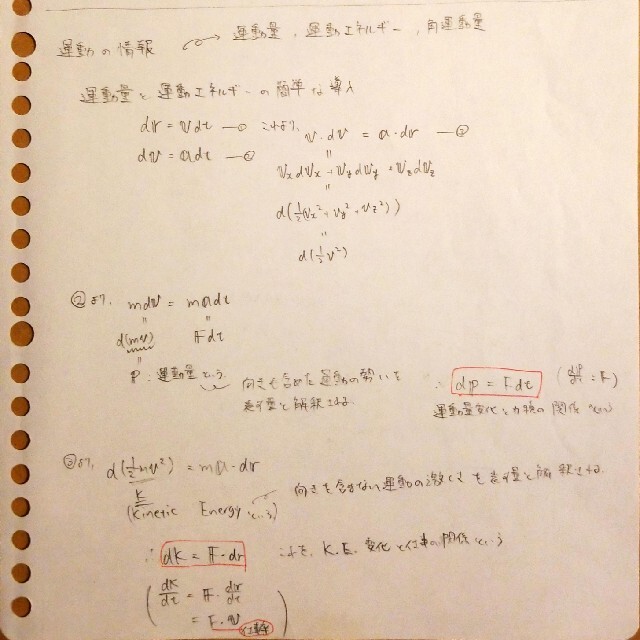 運動の情報 → 運動量, 運動エネルギー, 角運動量
運動量と運動エネルギーの簡単な導入
dr = vdt —① これより, v・dv = a・dr —③
dv = adt —②
vxdvx + vydvy + vzdvz
d(½(vx² + vy² + vz²))
d(½v²)
②より, mdv = madt
d(mv) Fdt
P : 運動量という 向きも含めた運動の勢いを
表す量と解釈される
∴ dp = Fdt (dp/dt = F)
運動量変化と力積の関係という
③より, d(½mv²) = ma・dr
K
(Kinetic Energyという) 向きを含まない運動の激しさを表す量と解釈される.
∴ dK = F・dr これを, K.E. 変化と仕事の関係という
(dK/dt = F・dr/dt
= F・v) 仕事率